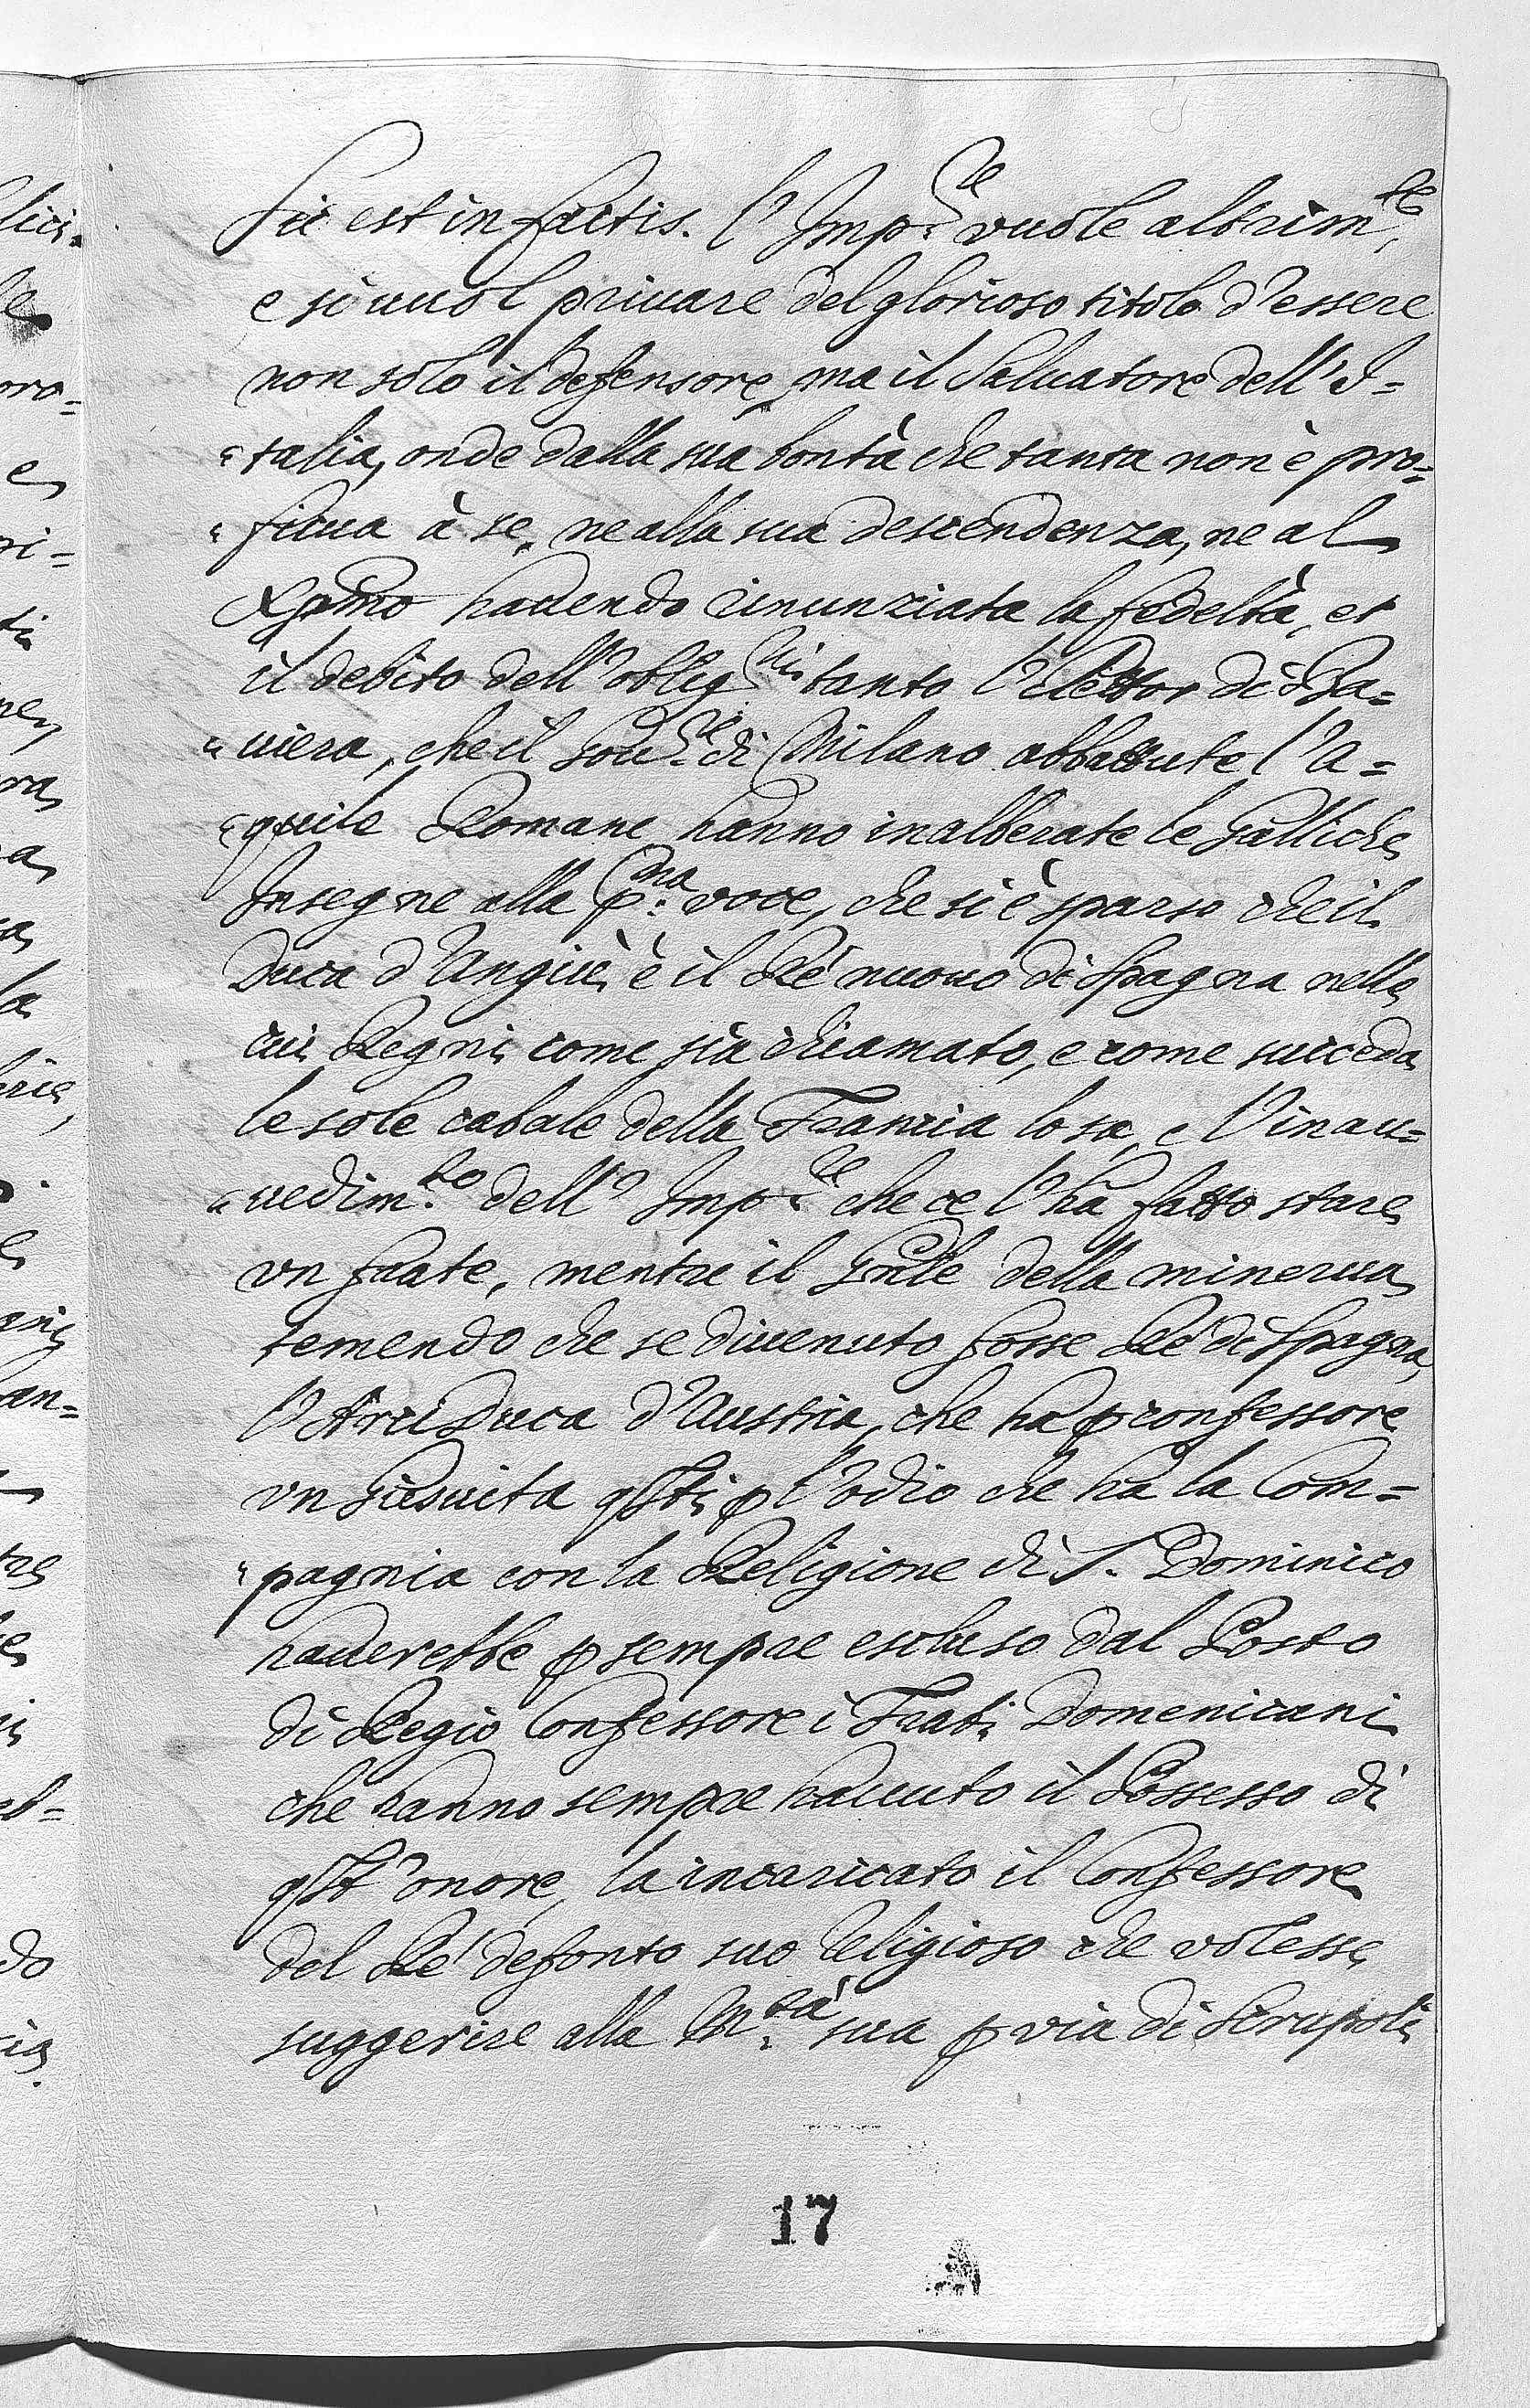 Sic est in factis. l'Imp.re vuole altrim.te,
e si vuol priuare del glorioso titolo d'essere
non solo il defensore, ma il Saluatore dell'I=
=talia, onde dalla sua bontà che tanta non è pro=
=ficua à se, ne alla sua descendenza, ne al
Xpmo hauendo rinunziata la fedeltà, et
il debito dell'oblig.ni tanto l'Elettor di Ba=
=uiera, che il Gou.re di Milano abbattute l'a=
=quile Romane hanno inalberate le Galliche
Insegne alla p.ma voce, che si è sparso che il
Duca d'Angiù è il Rè nuouo di Spagna nelli
cui Regni come sia chiamato, e come succeda
le sole cabale della Francia lo sa, e l'inau=
=uedim.to dell'Imp.re che ce l'ha fatto stare
vn frate, mentre il Gnle della minerua
temendo che se diuenuto fosse Rè di Spagna
l'Arciduca d'Austria, che ha p confessore
vn Giesuita qsti p l'odio che ha la Com=
=pagnia con la Religione di S. Dominico
hauerebbe p sempre escluso dal Posto
di Regio Confessore i Frati Domenicani
che hanno sempre hauuto il Possesso di
qst'onore, ha incaricato il Confessore
del Rè defonto suo Religioso che volesse
suggerire alla M.tà sua p via di scrupoli
17